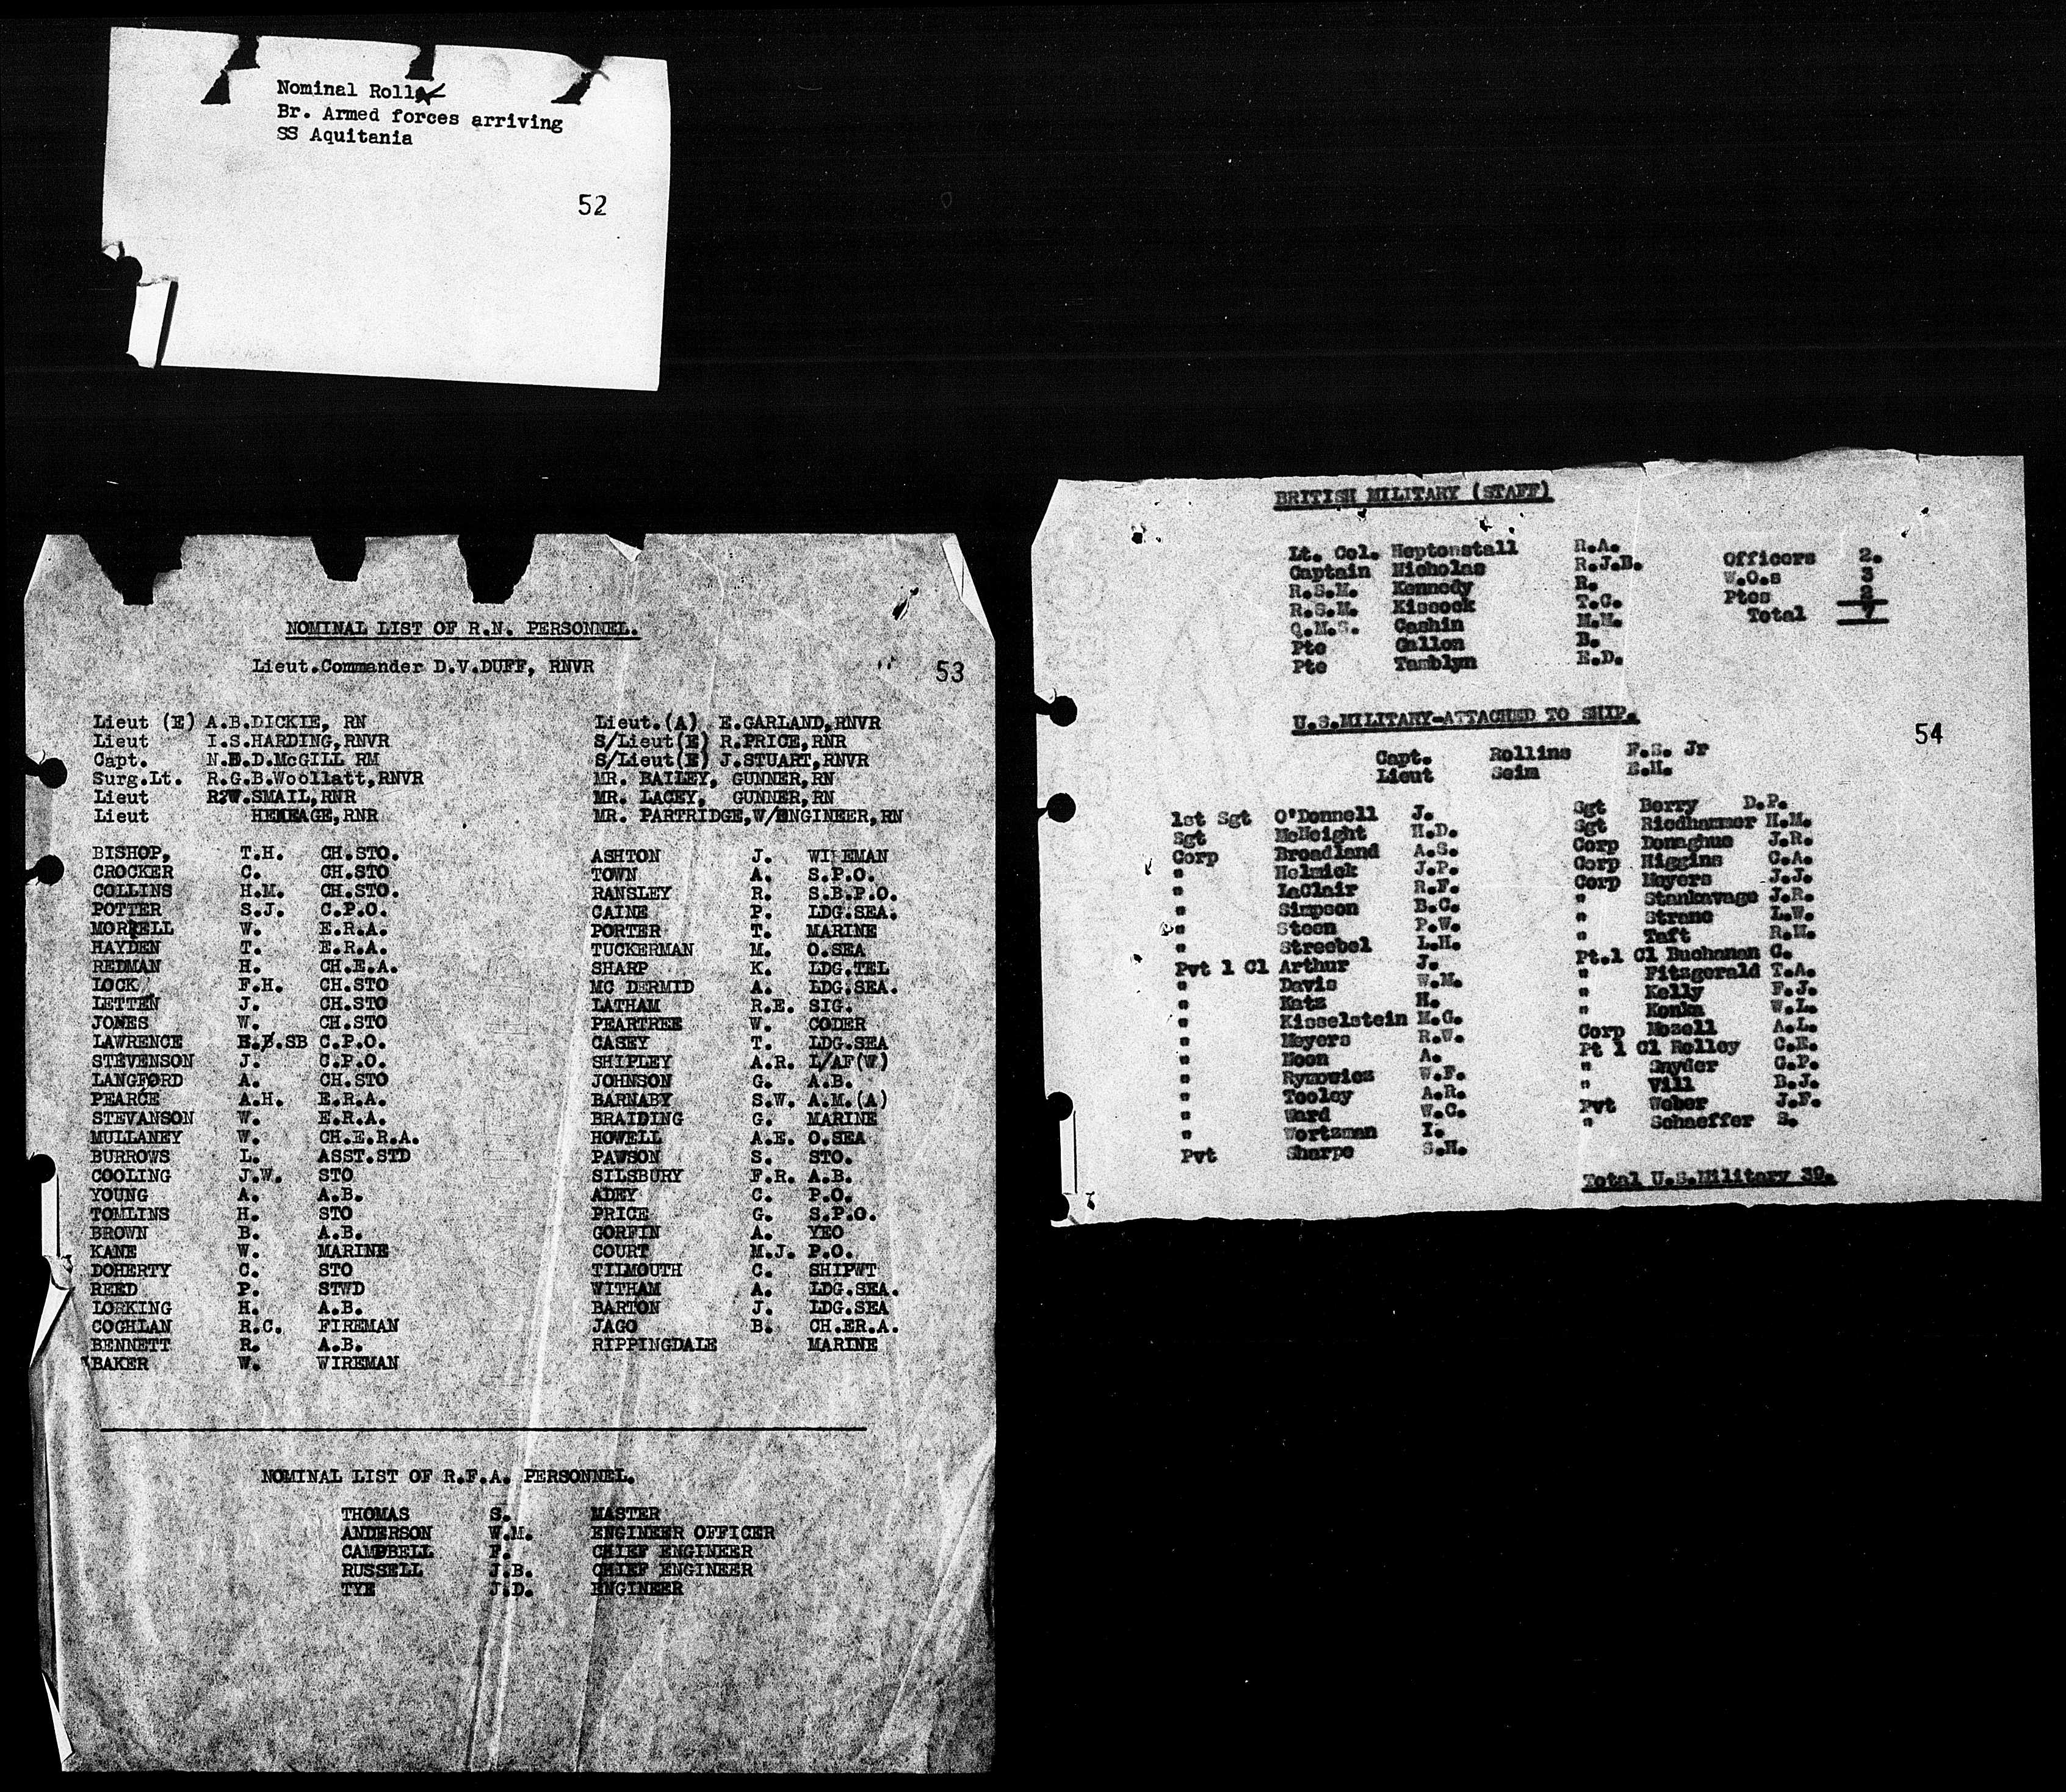 Nominal Roll
Br. Armed forces arriving
SS Aquitania
52
NOMINAL LIST OF R.N. PERSONNEL.
Lieut.Commander D.V.DUFF, RNVR
53
Lieut (E) A.B.DICKIE, RN Lieut.(A) E.GARLAND,RNVR
Lieut I.S.HARDING,RNVR S/Lieut(E) R.PRICE,RNR
Capt. N.E.D.McGILL RM S/Lieut(E) J.STUART,RNVR
Surg.Lt. R.G.B.Woollatt,RNVR MR. BAILEY, GUNNER,RN
Lieut R?W.SMAIL,RNR MR. LACEY, GUNNER,RN
Lieut HENEAGE,RNR MR. PARTRIDGE,W/ENGINEER,RN
BISHOP, T.H. CH.STO. ASHTON J. WIREMAN
CROCKER C. CH.STO TOWN A. S.P.O.
COLLINS H.M. CH.STO. RANSLEY R. S.B.P.O.
POTTER S.J. C.P.O. CAINE P. LDG.SEA.
MORRELL W. E.R.A. PORTER T. MARINE
HAYDEN T. E.R.A. TUCKERMAN M. O.SEA
REDMAN H. CH.E.A. SHARP K. LDG.TEL
LOCK F.H. CH.STO MC DERMID A. LDG.SEA.
LETTEN J. CH.STO LATHAM R.E. SIG.
JONES W. CH.STO PEARTREE W. CODER
LAWRENCE SB C.P.O. CASEY T. LDG.SEA
STEVENSON J. C.P.O. SHIPLEY A.R. L/AF(W)
LANGFORD A. CH.STO JOHNSON G. A.B.
PEARCE A.H. E.R.A. BARNABY S.W. A.M.(A)
STEVANSON W. E.R.A. BRAIDING G. MARINE
MULLANEY W. CH.E.R.A. HOWELL A.E. O.SEA
BURROWS L. ASST.STD PAWSON S. STO.
COOLING J.W. STO SILSBURY F.R. A.B.
YOUNG A. A.B. ADEY C. P.O.
TOMLINS H. STO PRICE G. S.P.O.
BROWN B. A.B. GORFIN A. YEO
KANE W. MARINE COURT M.J. P.O.
DOHERTY C. STO TILMOUTH C. SHIPWT
REED P. STWD WITHAM A. LDG.SEA.
LORKING H. A.B. BARTON J. LDG.SEA
COGHLAN R.C. FIREMAN JAGO B. CH.ER.A.
BENNETT R. A.B. RIPPINGDALE MARINE
BAKER W. WIREMAN
NOMINAL LIST OF R.F.A. PERSONNEL.
THOMAS S. MASTER
ANDERSON W.M. ENGINEER OFFICER
CAMPBELL F. CHIEF ENGINEER
RUSSELL J.B. CHIEF ENGINEER
TYE J.D. ENGINEER
BRITISH MILITARY (STAFF)
Lt. Col. Heptonstall R.A. Officers 2.
Captain Nicholas R.J.B. W.O.s 3
R.S.M. Kennedy R. Ptes 2
R.S.M. Kiscock T.C. Total 7
Q.M.S. Cashin M.M.
Pte Gallon B.
Pte Tamblyn E.D.
U.S.MILITARY-ATTACHED TO SHIP.
54
Capt. Rollins F.S. Jr
Lieut Seim E.H.
1st Sgt O'Donnell J. Sgt Berry D.P.
Sgt McHeight H.D. Sgt Riedhammer H.M.
Corp Broadland A.S. Corp Donaghue J.R.
" Helmick J.P. Corp Higgins C.A.
" LaClair R.F. Corp Meyers J.J.
" Simpson B.C. " Stankavage J.R.
" Steen P.W. " Strano L.W.
" Streebel L.H. " Taft R.M.
Pvt 1 Cl Arthur J. Pt.1 Cl Buchanan C.
" Davis W.M. " Fitzgerald T.A.
" Katz H. " Kelly F.J.
" Kisselstein M.C. " Konka W.L.
" Meyers R.W. Corp Mozell A.L.
" Moon A. Pt 1 Cl Rolley C.R.
" Rymowicz W.F. " Snyder G.P.
" Tooley A.R. " Vill B.J.
" Ward W.C. Pvt Weber J.F.
" Wortzman I. " Schaeffer S.
Pvt Sharpe S.H.
Total U.S.Military 39.